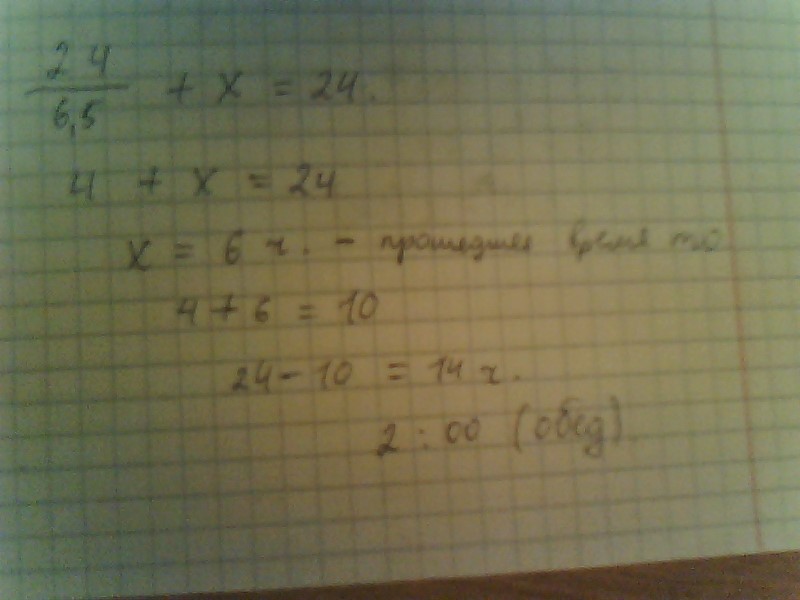 24
6,5 + x = 24.
4 + x = 24
x = 6 ч. - прошедшее время
4 + 6 = 10
24 - 10 = 14 ч.
2:00 (обед)